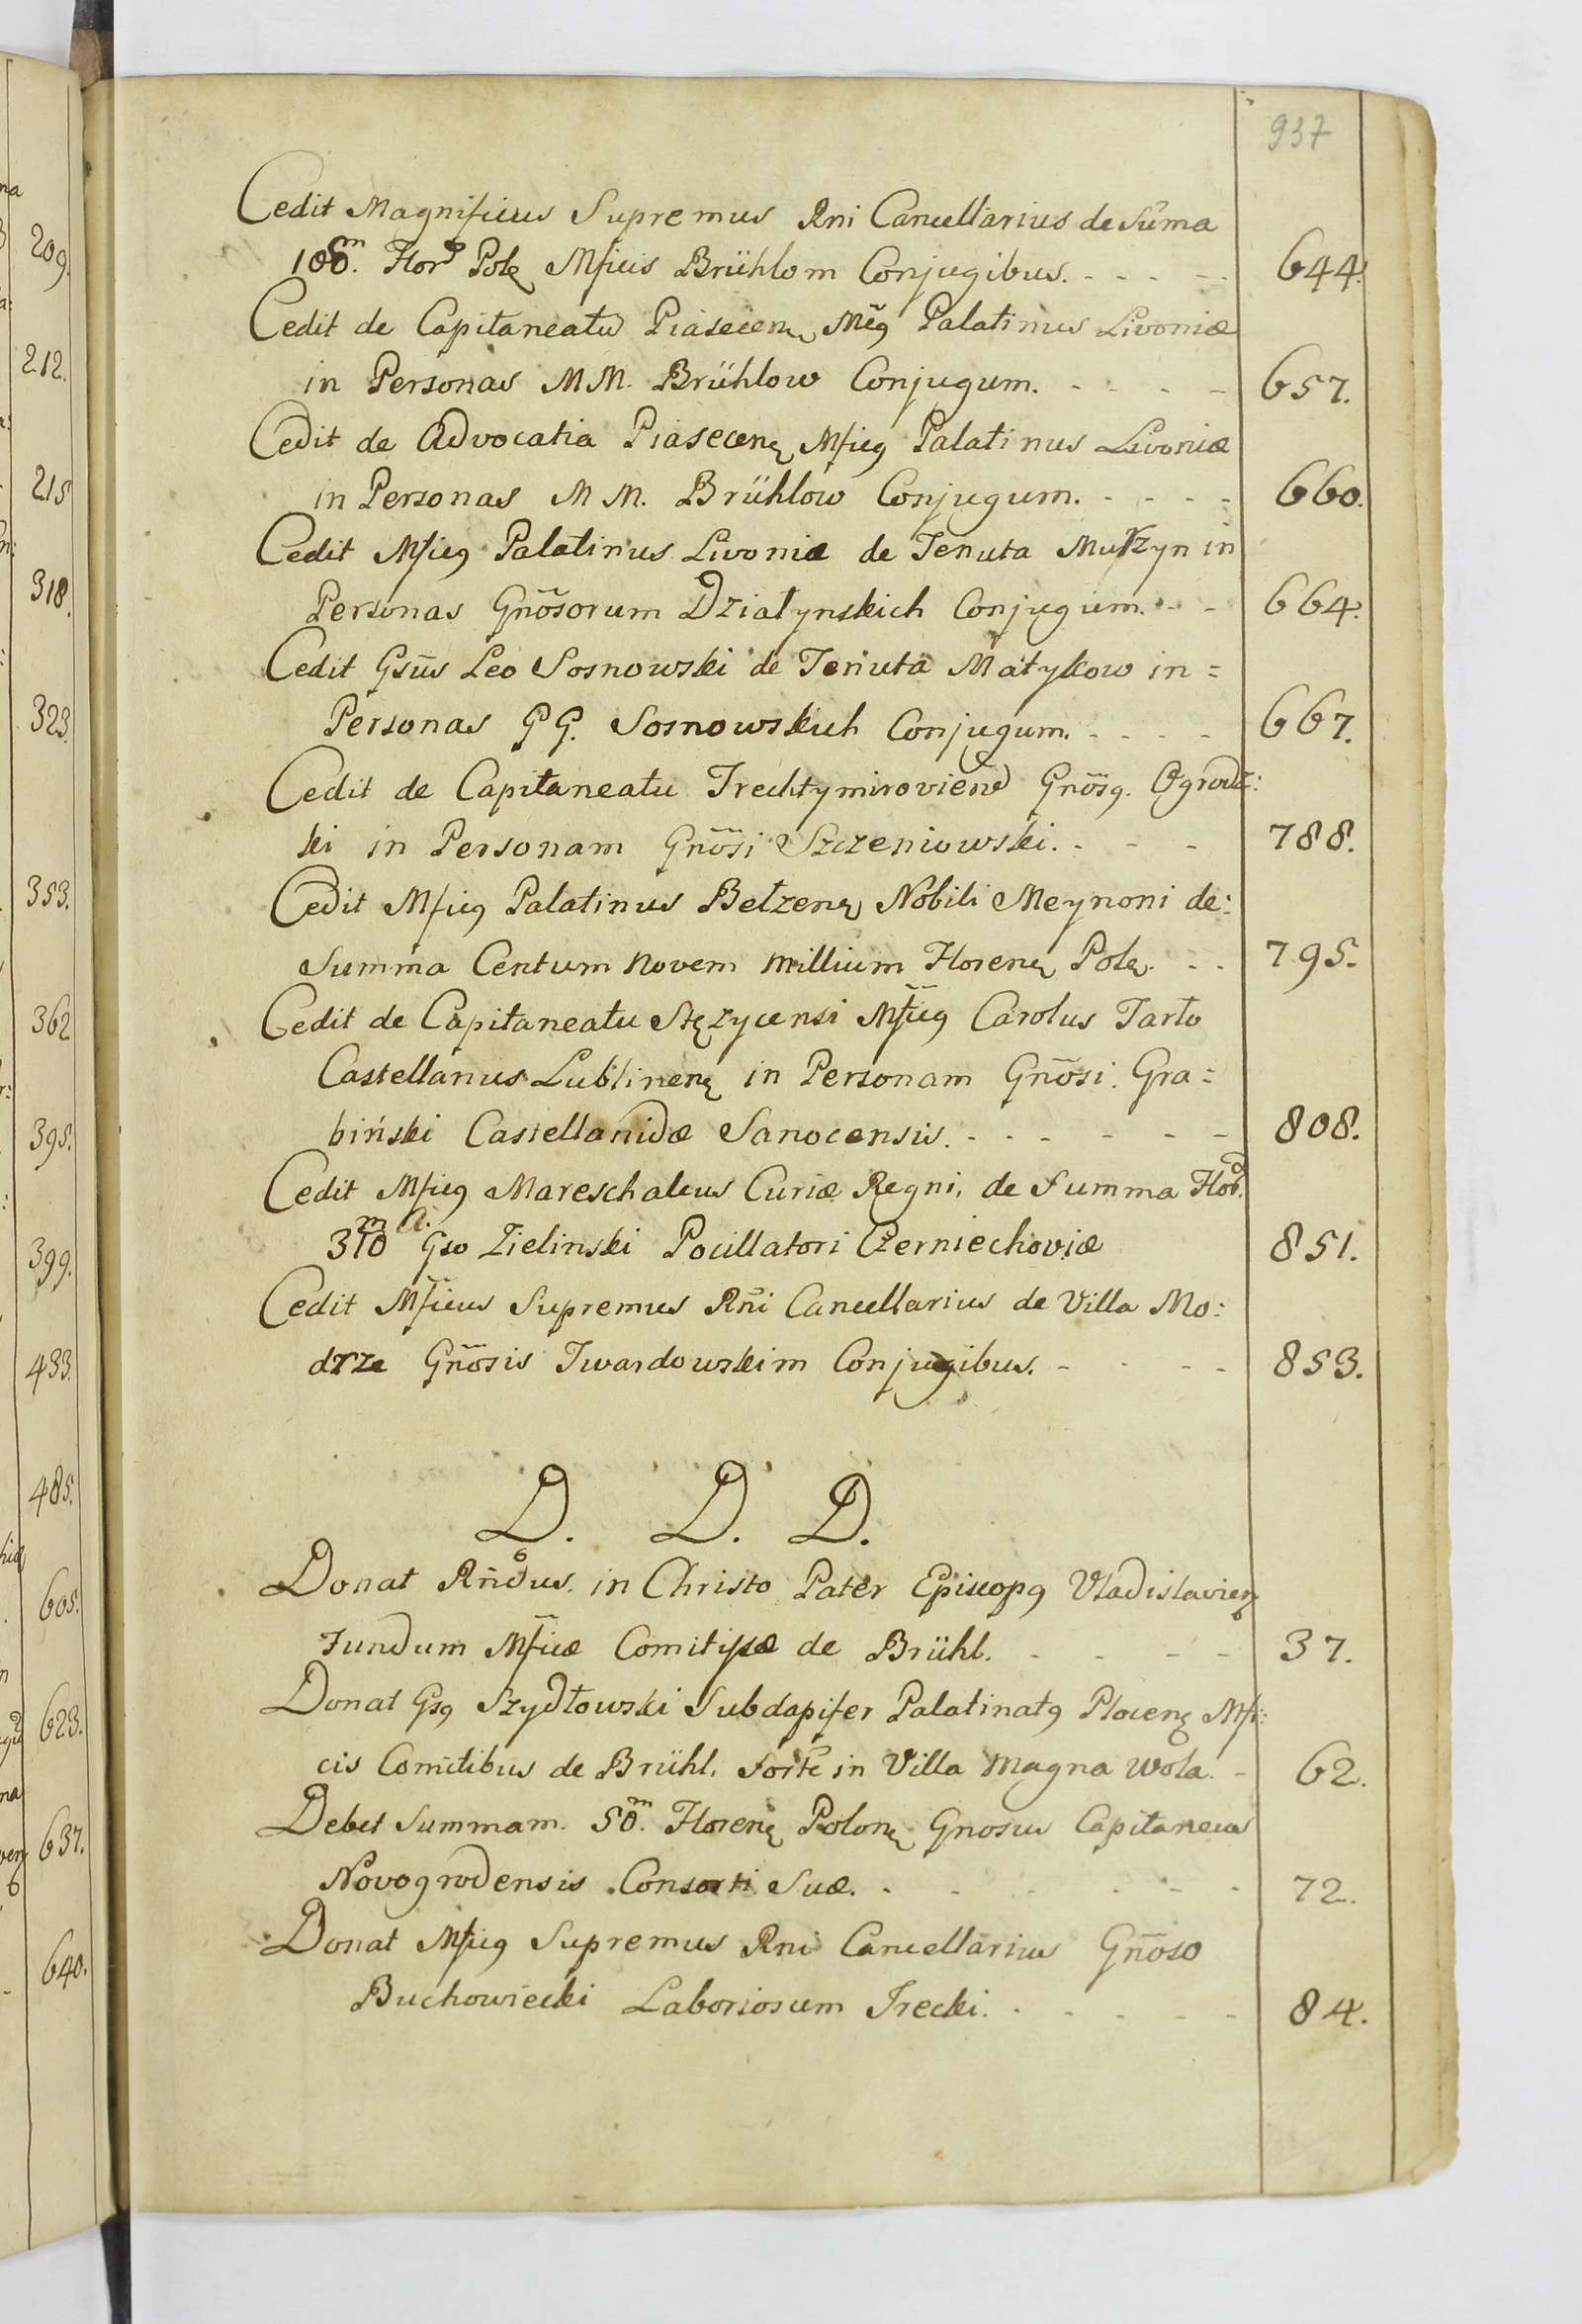 937
Cedit Magnificus Supremus Rni Cancellarius de Suma
100.m Flor Polę Mficis Brühlom Conjugibus. - - - - - 644.
Cedit de Capitaneatu Piasecenę Mcg Palatinus Livoniæ
in Personas MM. Brühlow Conjugum. - - - - 657.
Cedit de Advocatia Piasecenę Mficg Palatinus Livoniæ
in Personas MM. Brühlow Conjugum. - - - - 660.
Cedit Mficg Palatinus Livoniæ de Tenuta Murzyn in
Personas Gnõsorum Działynskich Conjugum. - - 664.
Cedit Gsũs Leo Sosnowski de Tenuta Matykow in =
Personas GG. Sosnowskich Conjugum. - - - - 667.
Cedit de Capitaneatu Trechtymiroviens Gnõsg. Ogrodz:
ki in Personam Gnõsi Szczeniowski. - - - 788.
Cedit Mficg Palatinus Bełzenę Nobili Meynoni de:
Summa Centum Novem Millium Florenę Polę. - - 795.
Cedit de Capitaneatu Stęzycensi Mficg Carolus Tarło
Castellanus Lublinenę in Personam Gnõsi. Gra=
biński Castellanidæ Sanocensis. - - - - - - 808.
Cedit Mficg Mareschalcus Curiæ Regni, de Summa Flor.
310m Gso Zielinski Pocillatori Czerniechoviæ 851.
Cedit Mficus Supremus Rñi Cancellarius de Villa Mo:
drze Gnõsis Twardowskim Conjugibus. - - - - 853.
D. D. D.
Donat Rñdus. in Christo Pater Episcopg Vladislavienę
Fundum Mficæ Comitissæ de Brühl. - - - - 37.
Donat Gsg Szydłowski Subdapifer Palatinatg Plocenę Mfi:
cis Comitibus de Brühl. Sorte in Villa Magna Wola. - 62.
Debet Summam. 50.m Florenę Polonę Gnosus Capitaneus
Novogrodensis Consorti Suæ. - - - - - - 72.
Donat Mficg Supremus Rni Cancellarius Gnõso
Buchowiecki Laboriosum Trecki. - - - - - 84.
209.
212.
215
318.
323.
353.
362
395.
399.
433.
485.
605.
623.
637.
640.